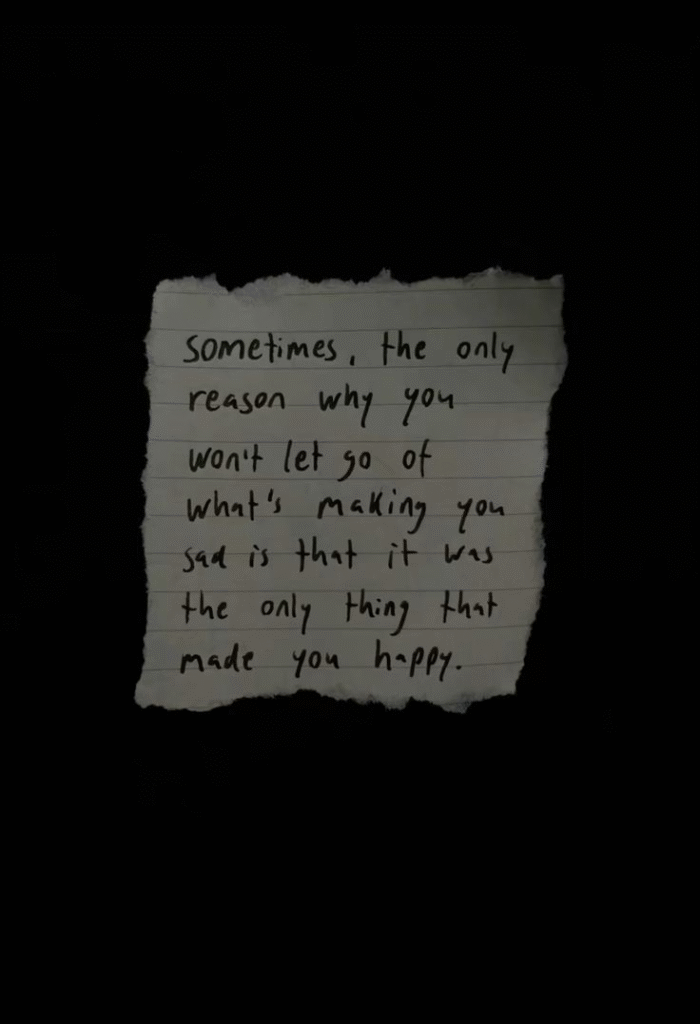 sometimes, the only
reason why you
won't let go of
what's making you
sad is that it was
the only thing that
made you happy.